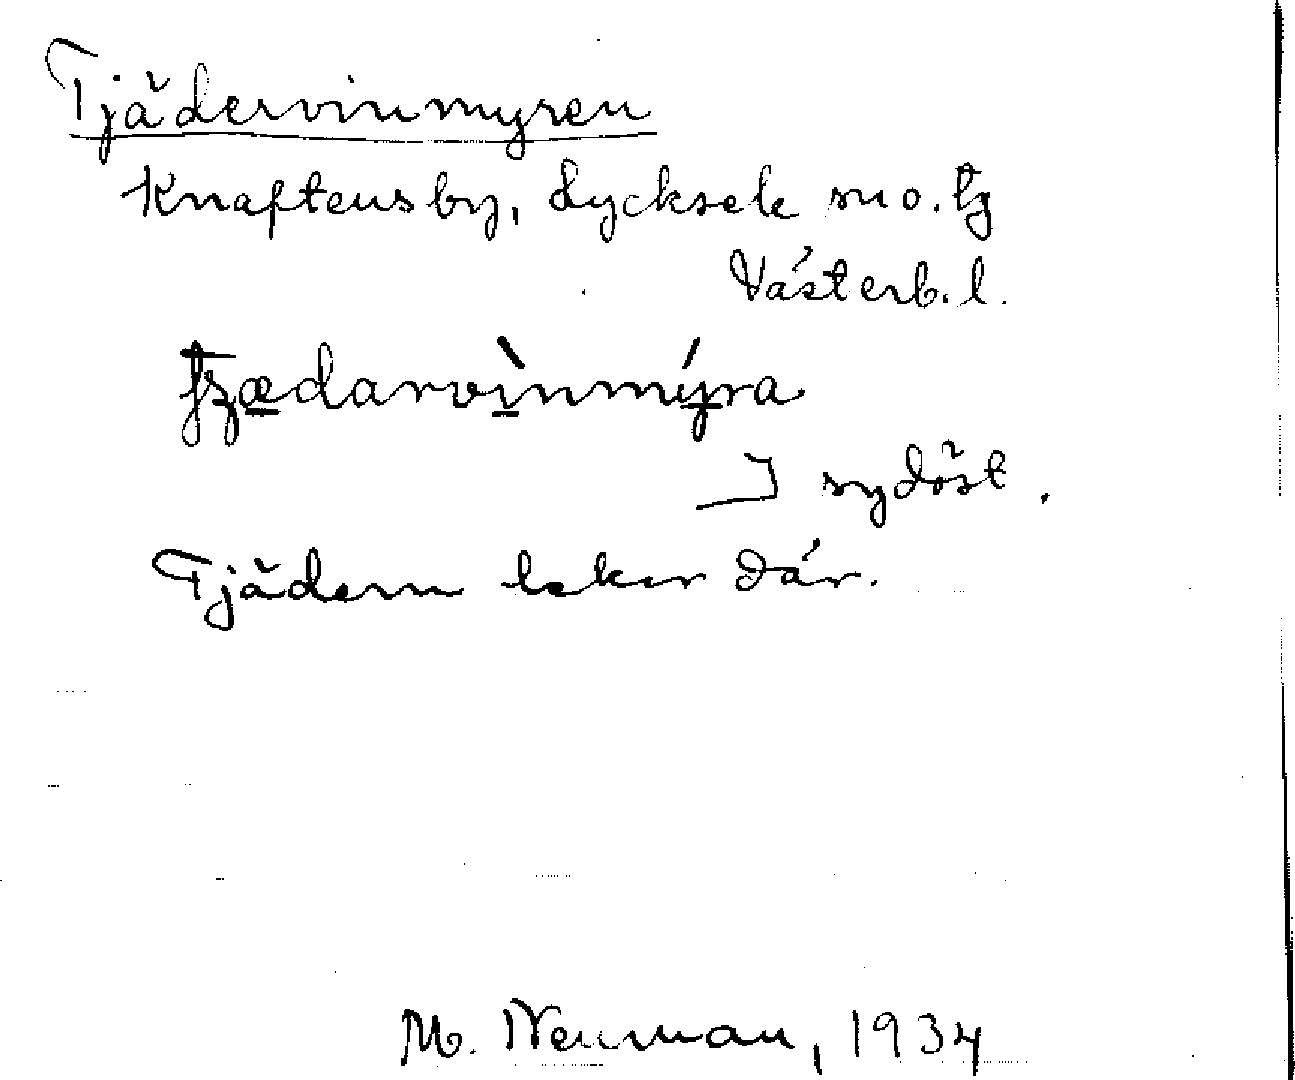 Tjädervinmyren
Knaftens by, Lycksele sn o. tg
Västerb. l.
tʒædarvìnmýra
I sydöst.
Tjädern leker där.
M. Neuman, 1934